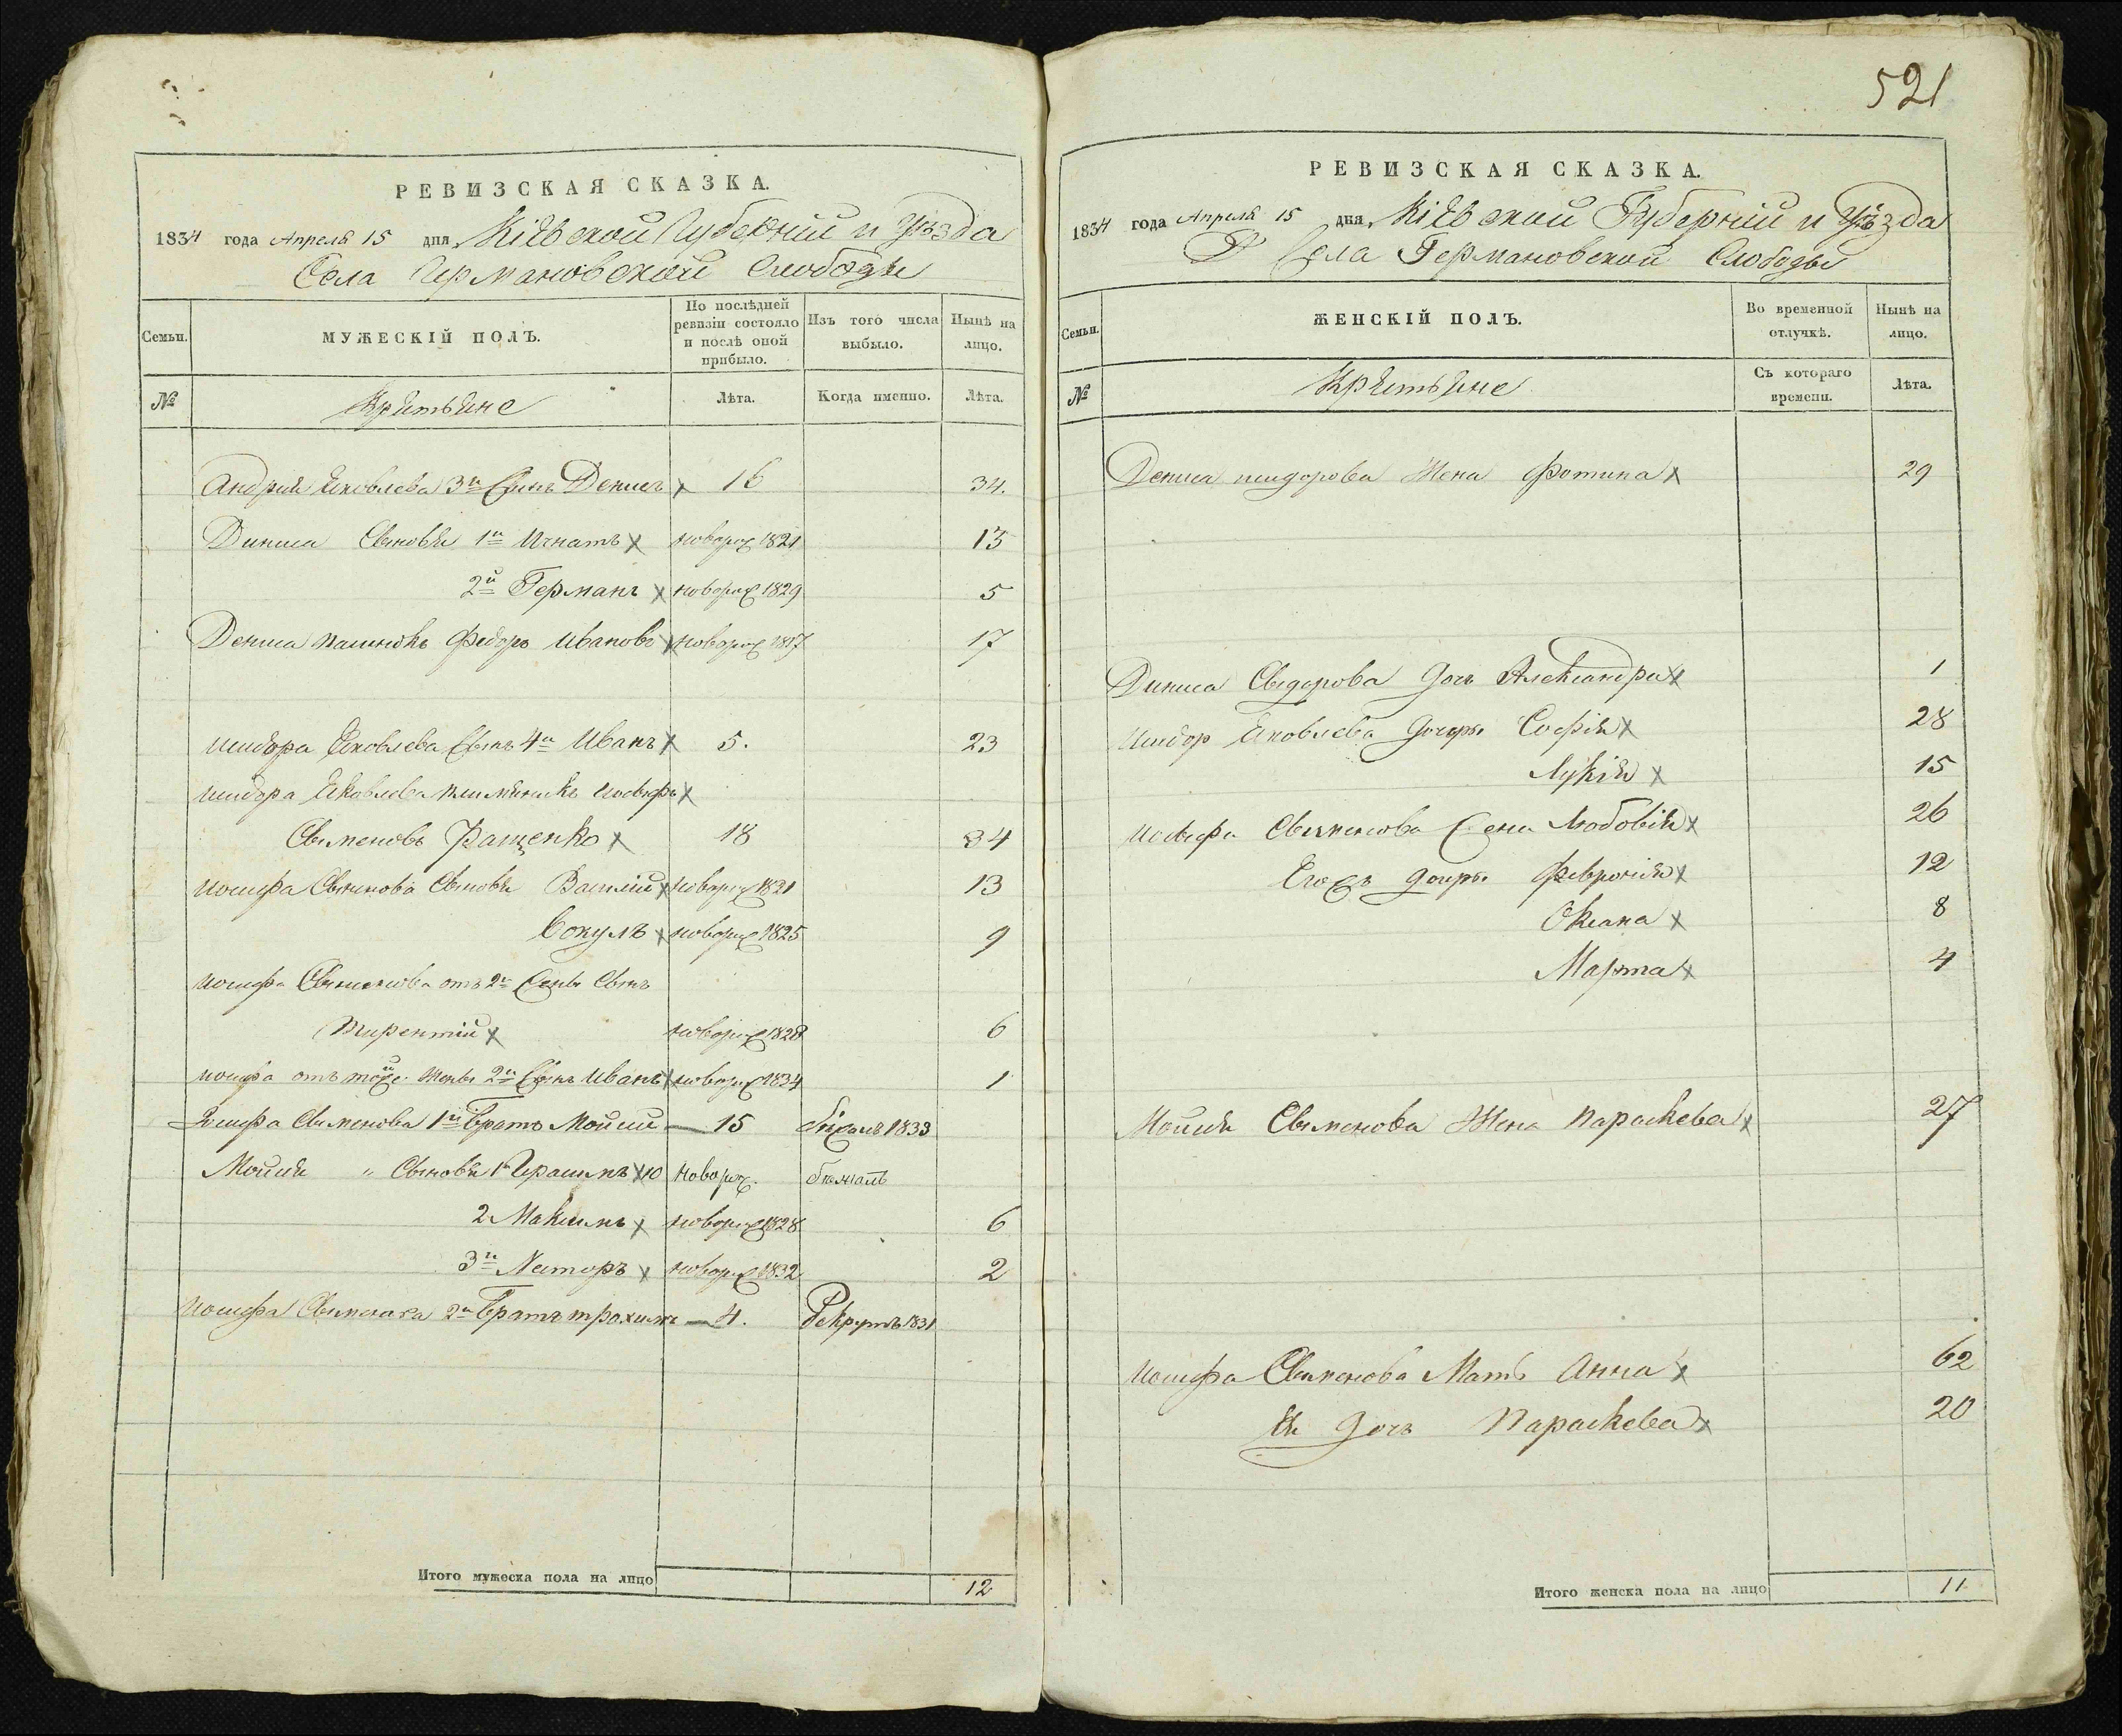 РЕВИЗСКАЯ СКАЗКА.
1834 года Апреля 15 дня Кіевской Губерніи и Уѣзда
Села Германовской Слободы
Семьи.
МУЖЕСКІЙ ПОЛЪ.
По послѣдней ревизіи состояло и послѣ оной прибыло.
Изъ того числа выбыло.
Нынѣ на лицо.
№
Лѣта.
Когда именно.
Лѣта.
Андрія Яковлева 3й Сынъ Денисъ 16 34.
Дениса Сыновья 1й Игнатъ новорож 1821 13
2й Германъ новорож 1829 5
Дениса Федоръ Ивановъ новорож 1817 17
Исидора Яковлева Сынъ 4й Иванъ 5. 23
Исидора Яковлева Иосифъ
Свменовъ Фащенко 18 34
Иосифа Свменова Сыновья Василій новорож 1821 13
Вокулъ новорож 1825 9
Иосифа Свменова отъ 2й Сынъ
Тирентій новорож 1828 6
Иосифа отъ тойже Жены 2й Сынъ Иванъ новорож 1834 1
Иосифа Свменова 1й Братъ Мойсій — 15 1833
Мойсія " Сыновья 1й Герасимъ 10 новорож. бѣжалъ
2 Максимъ новорож 1828 6
3й Несторъ новорож 1832 2
Иосифа Свменова 2й Братъ трохимъ — 4. Рекрутъ 1831
Итого мужеска пола на лицо 12
521
РЕВИЗСКАЯ СКАЗКА.
1834 года Апреля 15 дня Кіевской Губерніи и Уѣзда
Села Германовской Слободы
Семьи.
ЖЕНСКІЙ ПОЛЪ.
Во временной отлучкѣ.
Нынѣ на лицо.
№
Съ котораго времени.
Лѣта.
Дениса исидорова Жена Фотина 29
Дениса Сыдорова дочь Александра 1
Исидор Яковлева дочеры Софія 28
Лукія 15
Иосифа Свменова Любовія 26
дочеры Феврочія 12
Оксана 8
Марта 4
Мойсія Свменова Жена Параскева 27
Иосифа Свменова Мать Анна 62
Ея дочъ Параскева 20
Итого женска пола на лицо 11